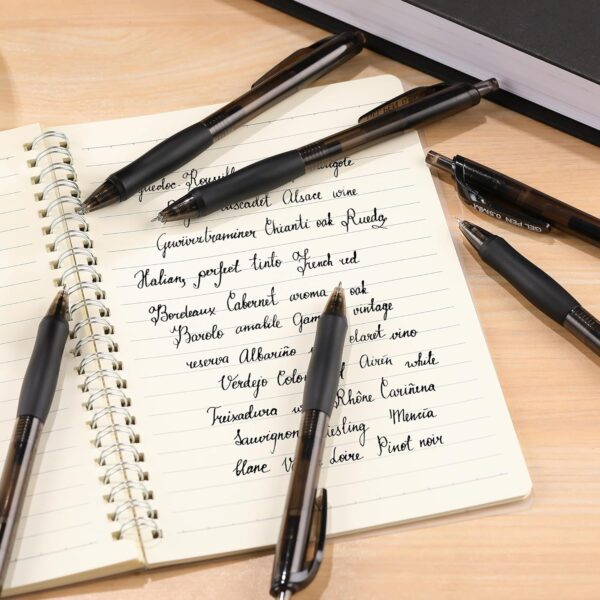 guedoc-Roussill angote
uscadet Alsace wine
Gewürztraminer Chianti oak Rueda
Italian, perfect tinto French red
Bordeaux Cabernet aroma oak
Barolo amabile Gam vintage
reserva Albariño claret vino
Verdejo Colo d Airén white
Treixadura w Rhône Cariñena
Sauvignon iesling Mencia
blanc V Loire Pinot noir
GEL PEN 0.5MM